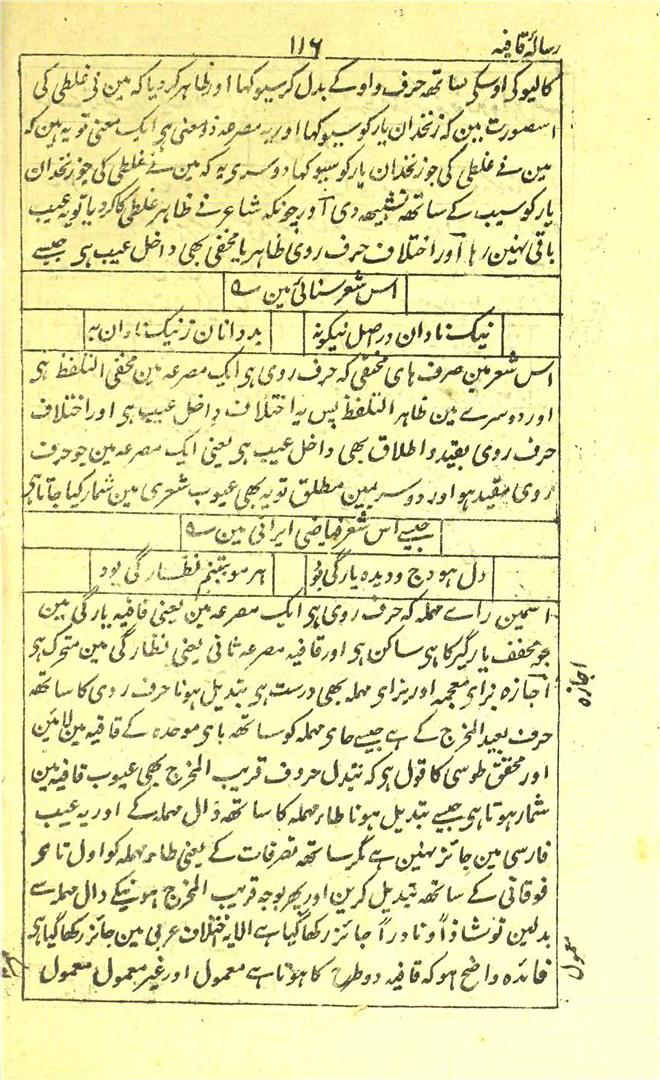 رسالۂ قافیہ
۱۱۶
کالیو کی اوسکی ساتھ حرف واو کے بدل کر سیو کہا اور ظاہر کر دیا کہ مین نی غلطی کی
اسصورت مین کہ زنخدان یار کو سیو کہا اور یہ مصرعہ ذو معنی ہی ایک معنی تو یہ ہین کہ
مین نے غلطی کی جو زنخدان یار کو سیو کہا دوسری یہ کہ مین نے غلطی کی جو زنخدان
یار کو سیب کے ساتھ تشبیھ دی آور چونکہ شاعر نے ظاہر غلطی کا کر دیا تو یہ عیب
باقی نہین رہا آور اختلاف حرف روی ظاہر یا مخفی بھی داخل عیب ہی جیسے
اس شعر سنائی مین ے
نیک نادان در اصل نیکو نہ
بد دانان ز نیک نادان بہ
اس شعر مین صرف ہای مخفی کہ حرف روی ہی ایک مصرعہ مین مخفی التلفظ ہی
اور دوسرے مین ظاہر التلفظ پس یہ اختلاف داخل عیب ہی اور اختلاف
حرف روی بقید و اطلاق بھی داخل عیب ہی یعنی ایک مصرعہ مین جو حرف
روی مقید ہو اور دوسریمین مطلق تو یہ بھی عیوب شعری مین شمار کیا جاتا ہی
جیسے اس شعر فیاضی ایرانی مین ے
دل ہودج و دیدہ یارگی بود
ہر مو بتنم نظارگی بود
اسمین راے مہملہ کہ حرف روی ہی ایک مصرعہ مین یعنی قافیہ یارگی مین
جو مخفف یارگیر کا ہی ساکن ہی اور قافیہ مصرعہ ثانی یعنی نظارگی مین متحرک ہی
آجازہ بزای معجمہ اور برای مہملہ بھی درست ہی تبدیل ہونا حرف روی کا ساتھ
حرف بعید المخرج کے ہے جیسے حای مہملہ کو ساتھ بای موحدہ کے قافیہ مین لائین
اور محقق طوسی کا قول ہی کہ تبدل حروف قریب المخرج بھی عیوب قافیہ مین
شمار ہوتا ہی جیسے تبدیل ہونا طاء مہملہ کا ساتھ دال مہملہ کے اور یہ عیب
فارسی مین جائز نہین ہے مگر ساتھ تصرفات کے یعنی طاء مہملہ کو اول تاء
فوقانی کے ساتھ تبدیل کرین اور پھر بوجہ قریب المخرج ہونیکے دال مہملہ سے
بدلین تو شاذاً و نادراً جائز رکھا گیا ہے الا یہ اختلاف عربی مین جائز رکھا گیا ہی
فائدہ واضح ہو کہ قافیہ دو طرح کا ہوتا ہے معمول اور غیر معمول معمول
اجازہ
معمول